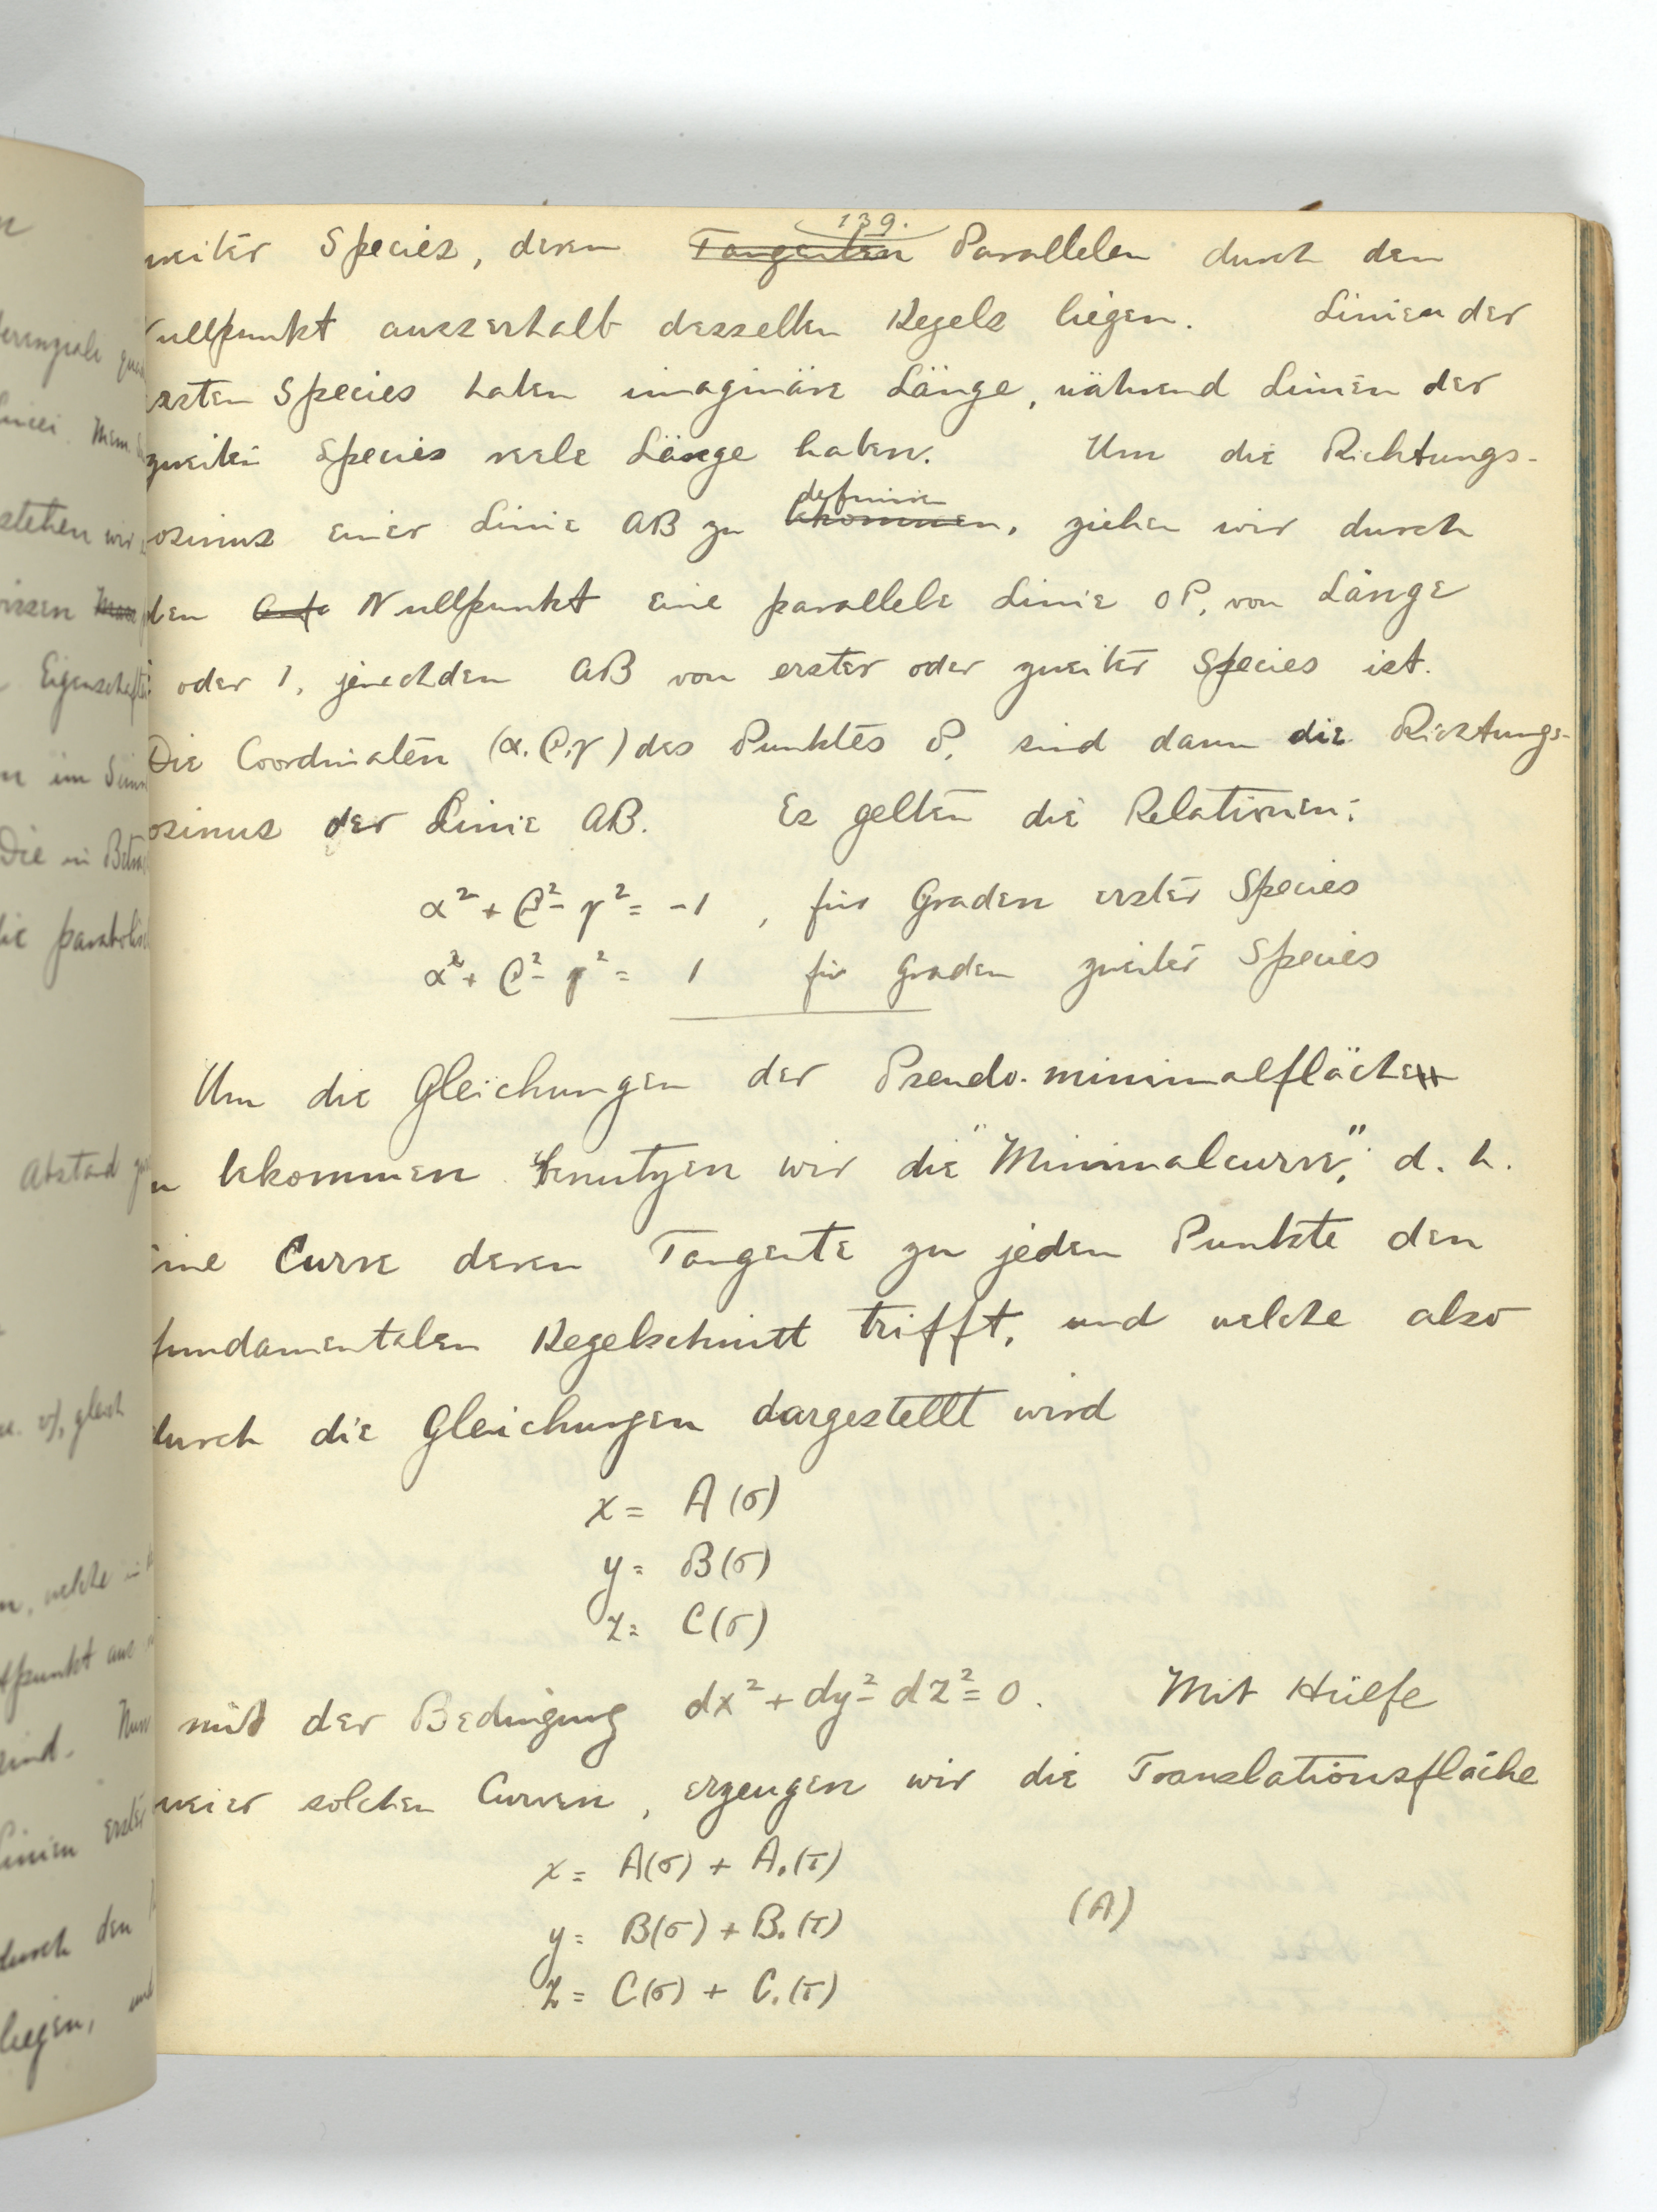 139.
weiter Species, deren Tangenten Parallelen durch den
Nullpunkt ausserhalb desselben Kegels liegen. Linien der
ersten Species haben imaginäre Länge, während Linien der
zweiten Species reele Länge haben. Um die Richtungs-
cosinus einer Linie AB zu bekommen definiren, ziehen wir durch
den Nullpunkt eine parallele Linie OP, von Länge
i oder 1, jenachdem AB von erster oder zweiter Species ist.
Die Coordinaten (α, β, γ) des Punktes P, sind dann die Richtungs-
cosinus der Linie AB. Es gelten die Relationen:
α² + β² - γ² = -1, für Graden erster Species
α² + β² - γ² = 1 für Graden zweiter Species
Um die Gleichungen der Pseudo-minimalfläche
zu bekommen benutzen wir die "Minimalcurve", d. h.
eine Curve deren Tangente zu jeden Punkte den
fundamentalen Kegelschnitt trifft, und welche also
durch die Gleichungen dargestellt wird
x = A(σ)
y = B(σ)
z = C(σ)
mit der Bedingung dx² + dy² - dz² = 0. Mit Hülfe
zweier solchen Curven, erzeugen wir die Translationsfläche
x = A(σ) + A₁(τ)
y = B(σ) + B₁(τ) (A)
z = C(σ) + C₁(τ)